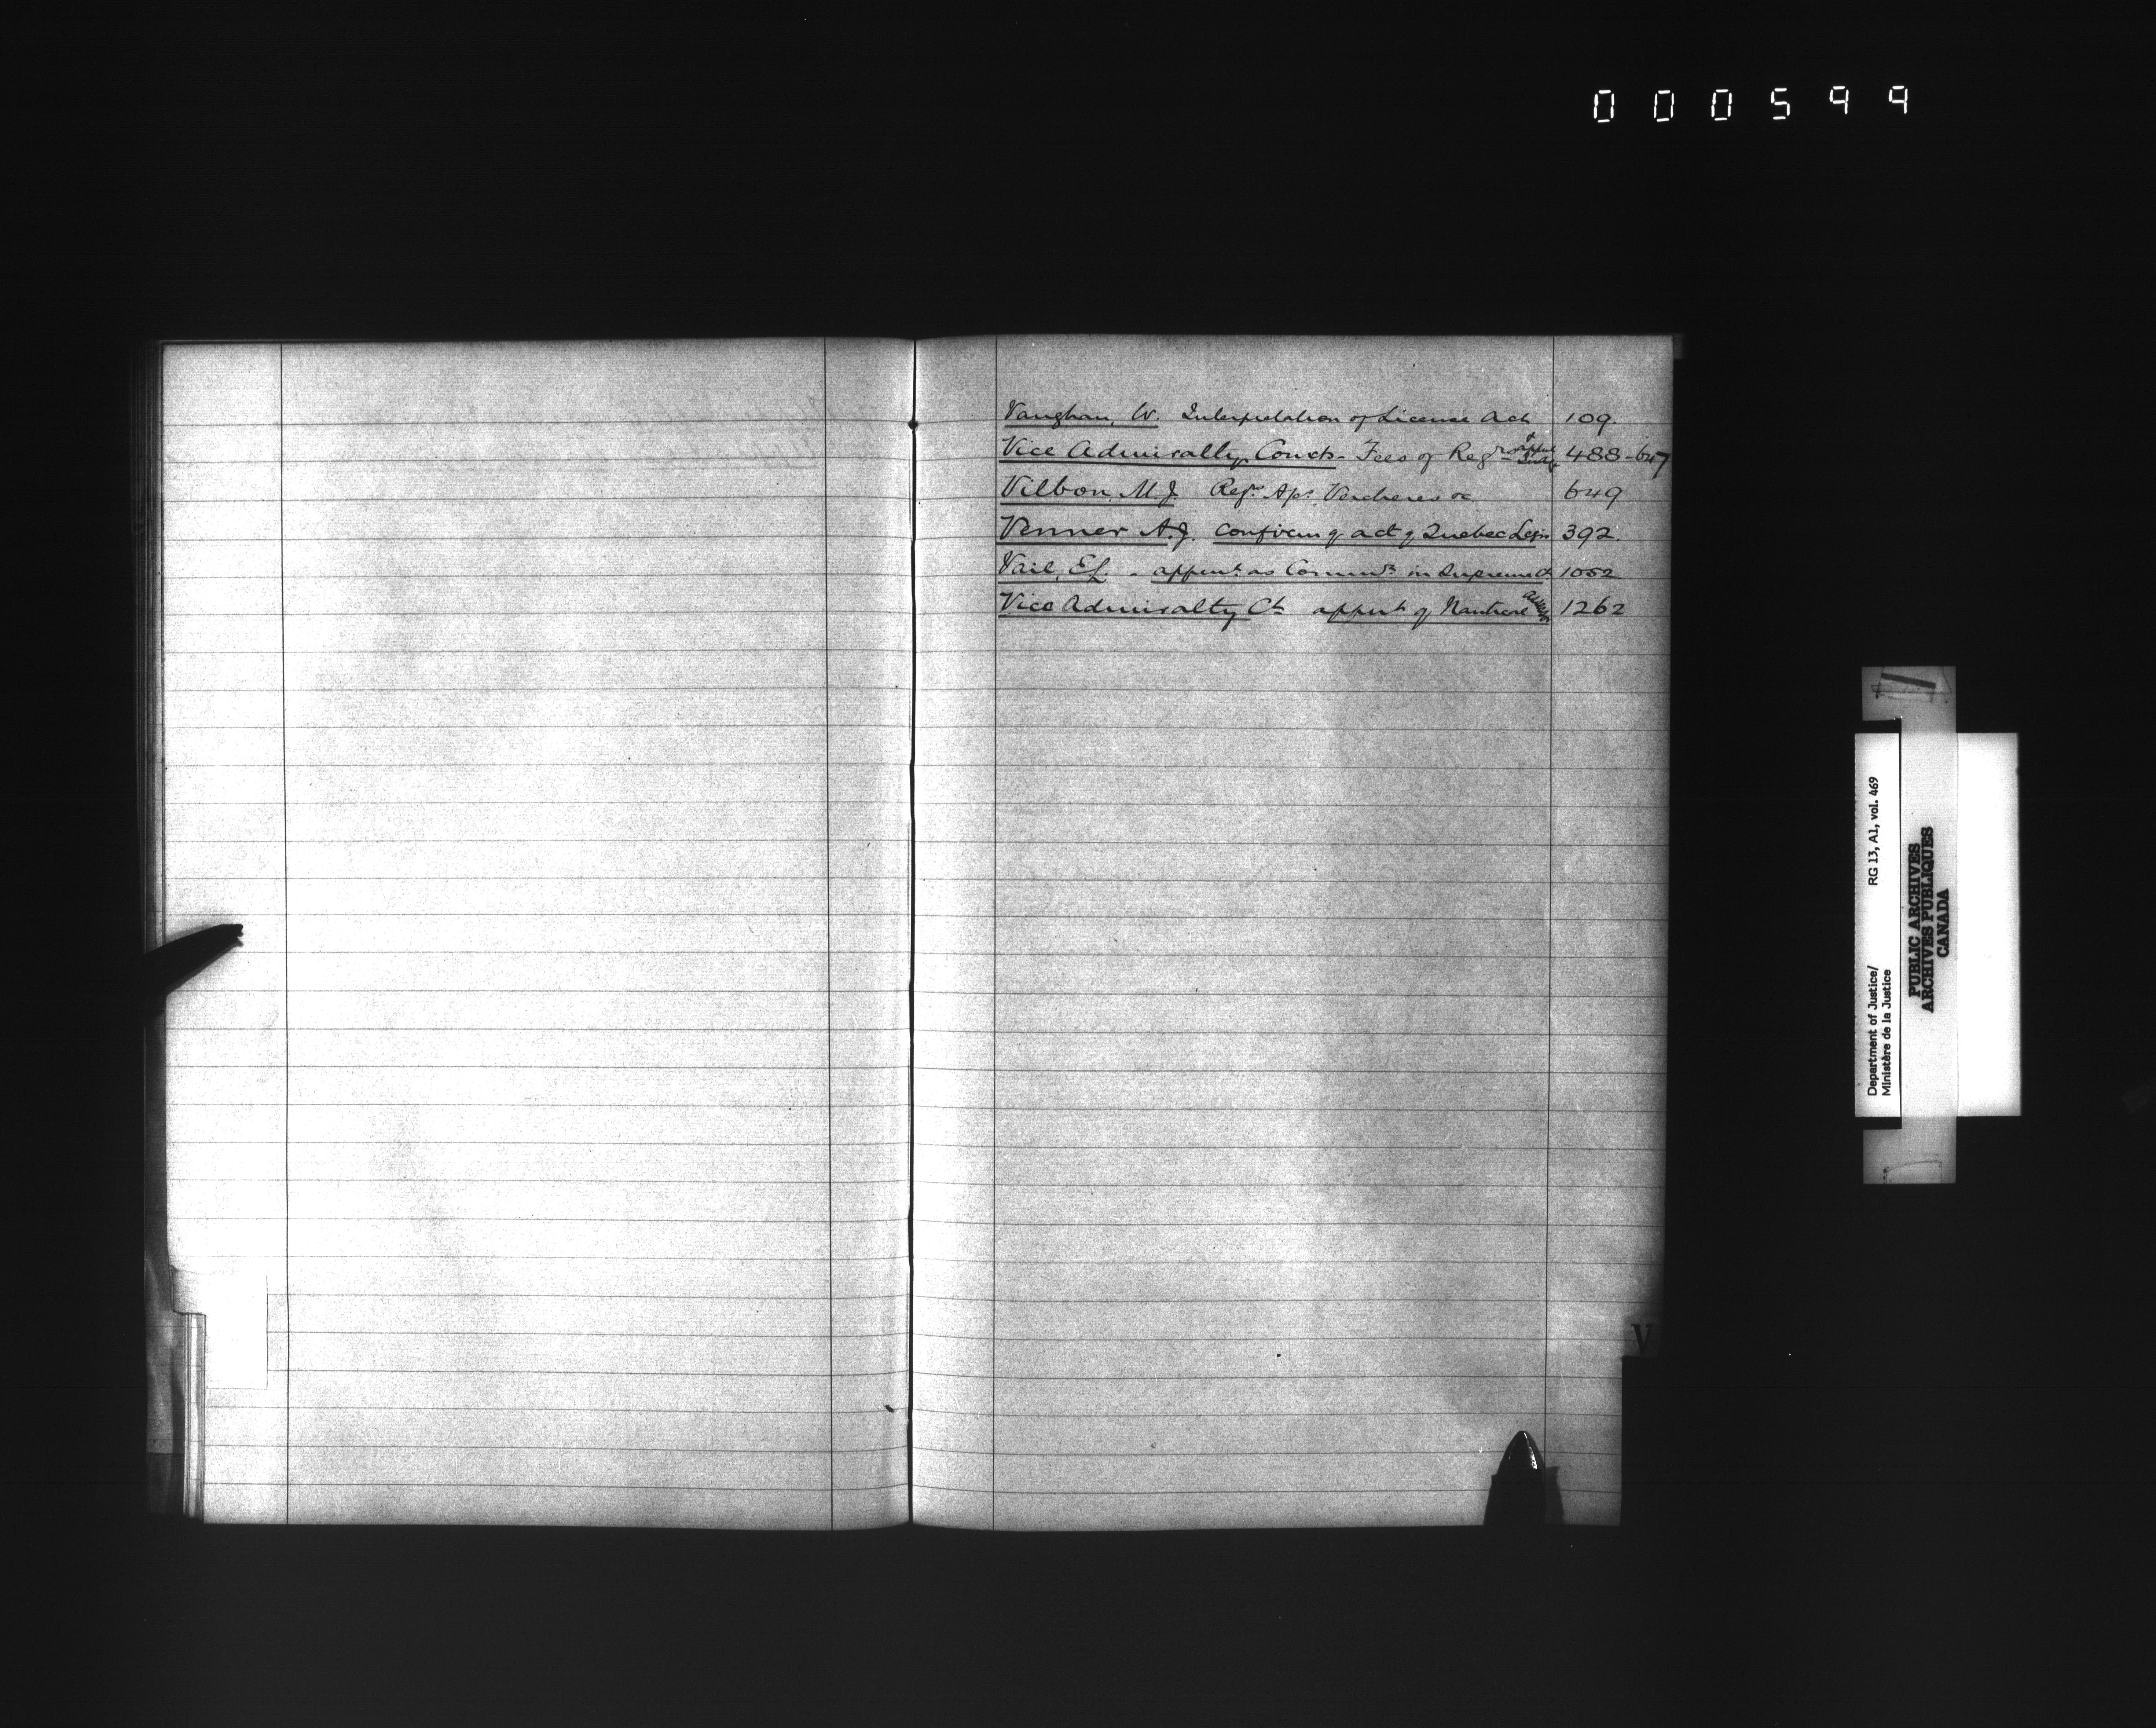 000599
Vaughan, W. Interpretation of License Act 109.
Vice Admiralty Courts - Fees of Regr 488-647
Vilbon, M.J. Regr Vercheres 649
Venner A.J. confirmg act of Quebec Legis 392.
Vail, E.L. - appent as Commr in Supreme Ct 1052
Vice Admiralty Ct appent of Nautical 1262
V
Department of Justice/ RG 13, A1, vol. 469
Ministère de la Justice
PUBLIC ARCHIVES
ARCHIVES PUBLIQUES
CANADA